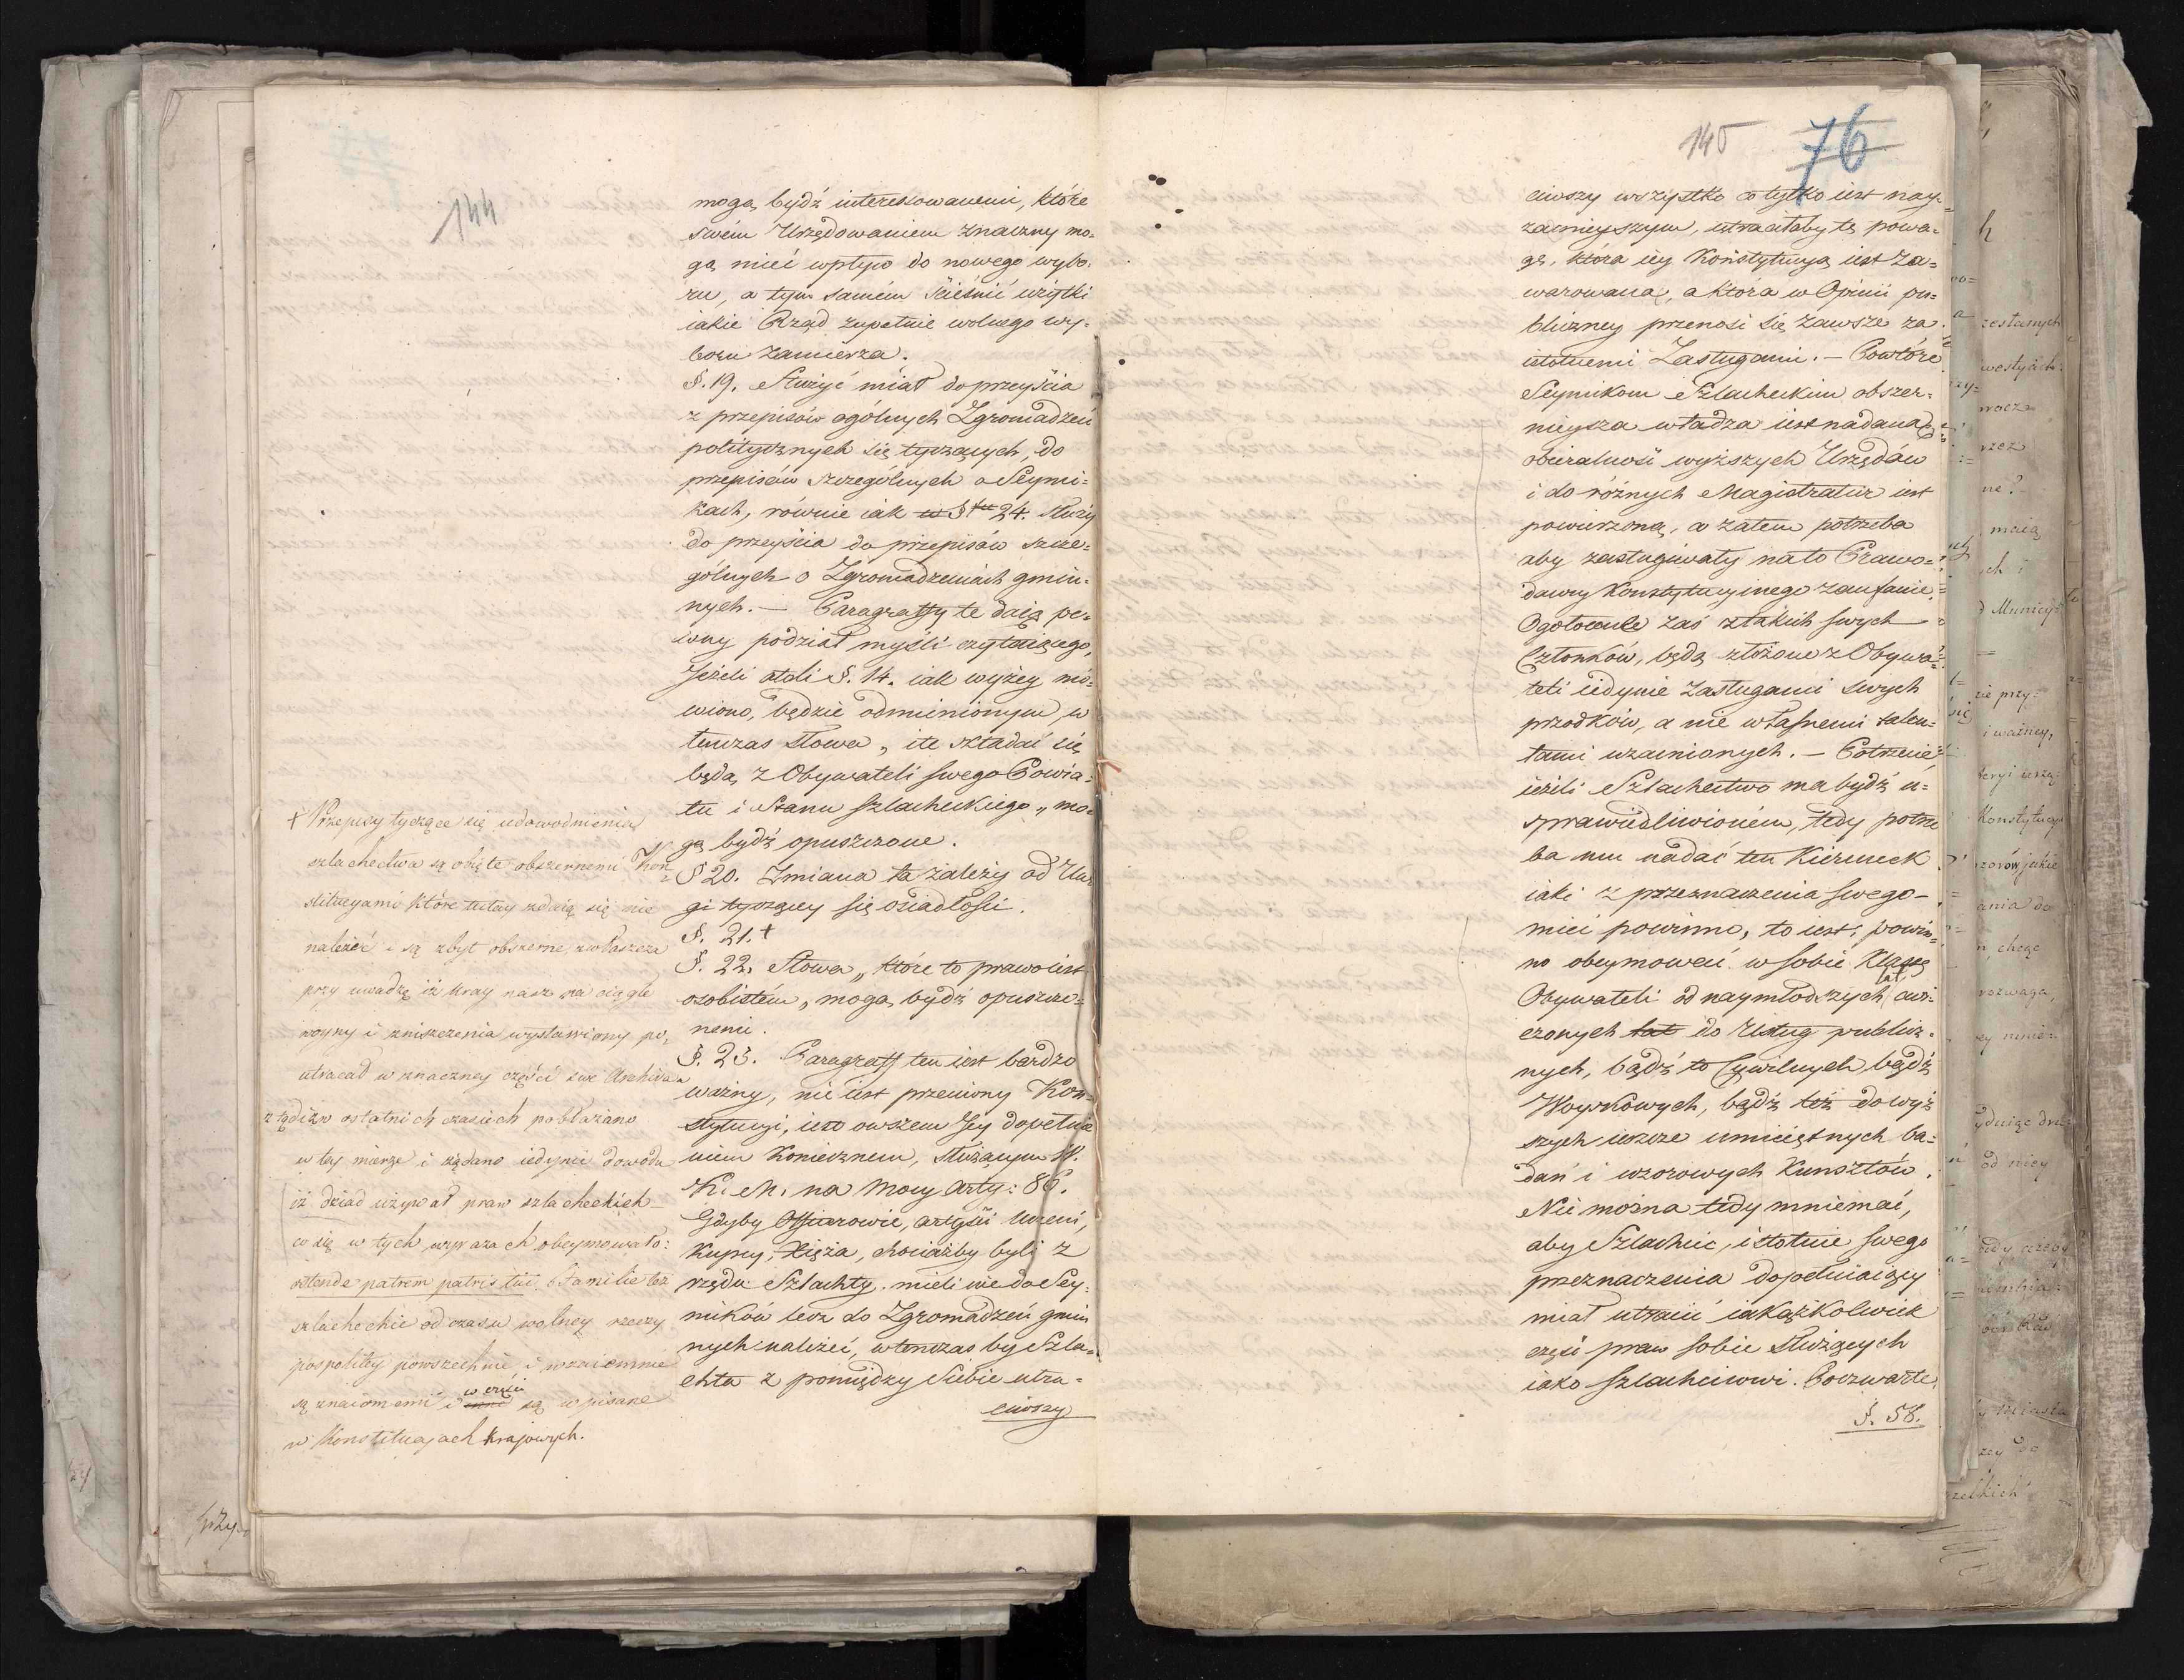 144
mogą bydź interesowanemi, które
swém Urzędowaniem znaczny mo=
gą mieć wpływ do nowego wybo=
ru, a tym samém ścieśnić użytki
iakie Rząd zupełnie wolnego wy=
boru zamierza.
§. 19. Służyć miał do przeyścia
z przepisów ogólnych Zgromadzeń
politycznych się tyczących, do
przepisów szczególnych o Seymi=
kach, równie iak w § 24. służy
do przeyścia do przepisów szcze=
gólnych o Zgromadzeniach gmin=
nych. — Paragraffy te daią pe=
wny podział myśli czytaiącego,
Jeżeli atoli §. 14. iak wyżey mó=
wiono, będzie odmienionym, w
tenczas słowa „ ile składać się
będą z Obywateli swego Powia=
tu i Stanu szlacheckiego „ mo=
gą bydź opuszczone.
§ 20. Zmiana ta zależy od Uwa
gi tyczącey się osiadłości.
§. 21. +
§. 22. Słowa „ które to prawo iest
osobistém „ mogą bydź opuszczo=
nemi.
§. 23. Paragraff ten iest bardzo
ważny, nie iest przeciwny Kon=
stytucyi, iest owszem Jey dopełnie
niem koniecznem, służącym W.
K. M. na mocy arty: 86.
Gdyby Officerowie, artyści Uczeni,
Kupcy, Xięża, chociażby byli z
rzędu Szlachty, mieli nie do Sey=
mików lecz do Zgromadzeń gmin
nych należeć, wtenczas by Szla=
chta z pomiędzy siebie utra=
ciwszy
+ Przepisy tyczące się udowodnienia
szlachectwa są obięte obszernemi Kon=
stitucyami które tutay zdaią się nie
należeć i są zbyt obszerne, zwłaszcza
przy uwadze iż kray nasz na ciągłe
woyny i zniszczenia wystawiony po=
utracał w znaczney części swe Archiwa
z tąd iż w ostatnich czasiech pobłażano
w tey mierze i żądano iedynie dowodu
iż dziad używał praw szlacheckich—
co się w tych wyrazach obeymowało:
ostende patrem patris tui. Familie też
szlacheckie od czasu wolney rzeczy
pospolitey powszechnie i wzaiemnie
są znaiomemi i w części są wpisane
w Konstitucyach krajowych.
145 76
ciwszy wszystko co tylko iest nay=
zacnieyszym, utraciłaby tę powa=
gę, która iey Konstytucyą iest za=
warowaną, a która w Opinii pu=
bliczney przenosi się zawsze za
istotnemi Zasługami. — Powtóre
Seymikom Szlacheckim obszer=
nieysza władza iest nadaną,
obieralność wyższych Urzędów
i do różnych Magistratur iest
powierzoną, a zatem potrzeba
aby zasługiwały na to Prawo=
dawcy Konstytucyinego zaufanie.
Ogołocone zaś z takich swych
Członków, będą złożone z Obywa=
teli iedynie zasługami swych
przodków, a nie własnemi talen=
tami uzacnionych. — Potrzecie
ieżeli Szlachectwo ma bydź u=
sprawiedliwioném, tedy potrze
ba mu nadać ten kierunek
iaki z przeznaczenia swego—
mieć powinno, to iest: powin=
no obeymować w sobie Klassę
Obywateli od naymłodszych lat ćwi=
czonych lat do Usług public=
nych, bądź to Cywilnych bądź
Woyskowych, bądź też do wyż
szych ieszcze umieiętnych ba=
dań i wzorowych Kunsztów.
Nie można tedy mniemać,
aby Szlachcic, istotnie swego
przeznaczenia dopełniaiący
miał utracić iakążkolwiek
część praw sobie służących
iako szlachcicowi. Poczwarte,
§. 58.